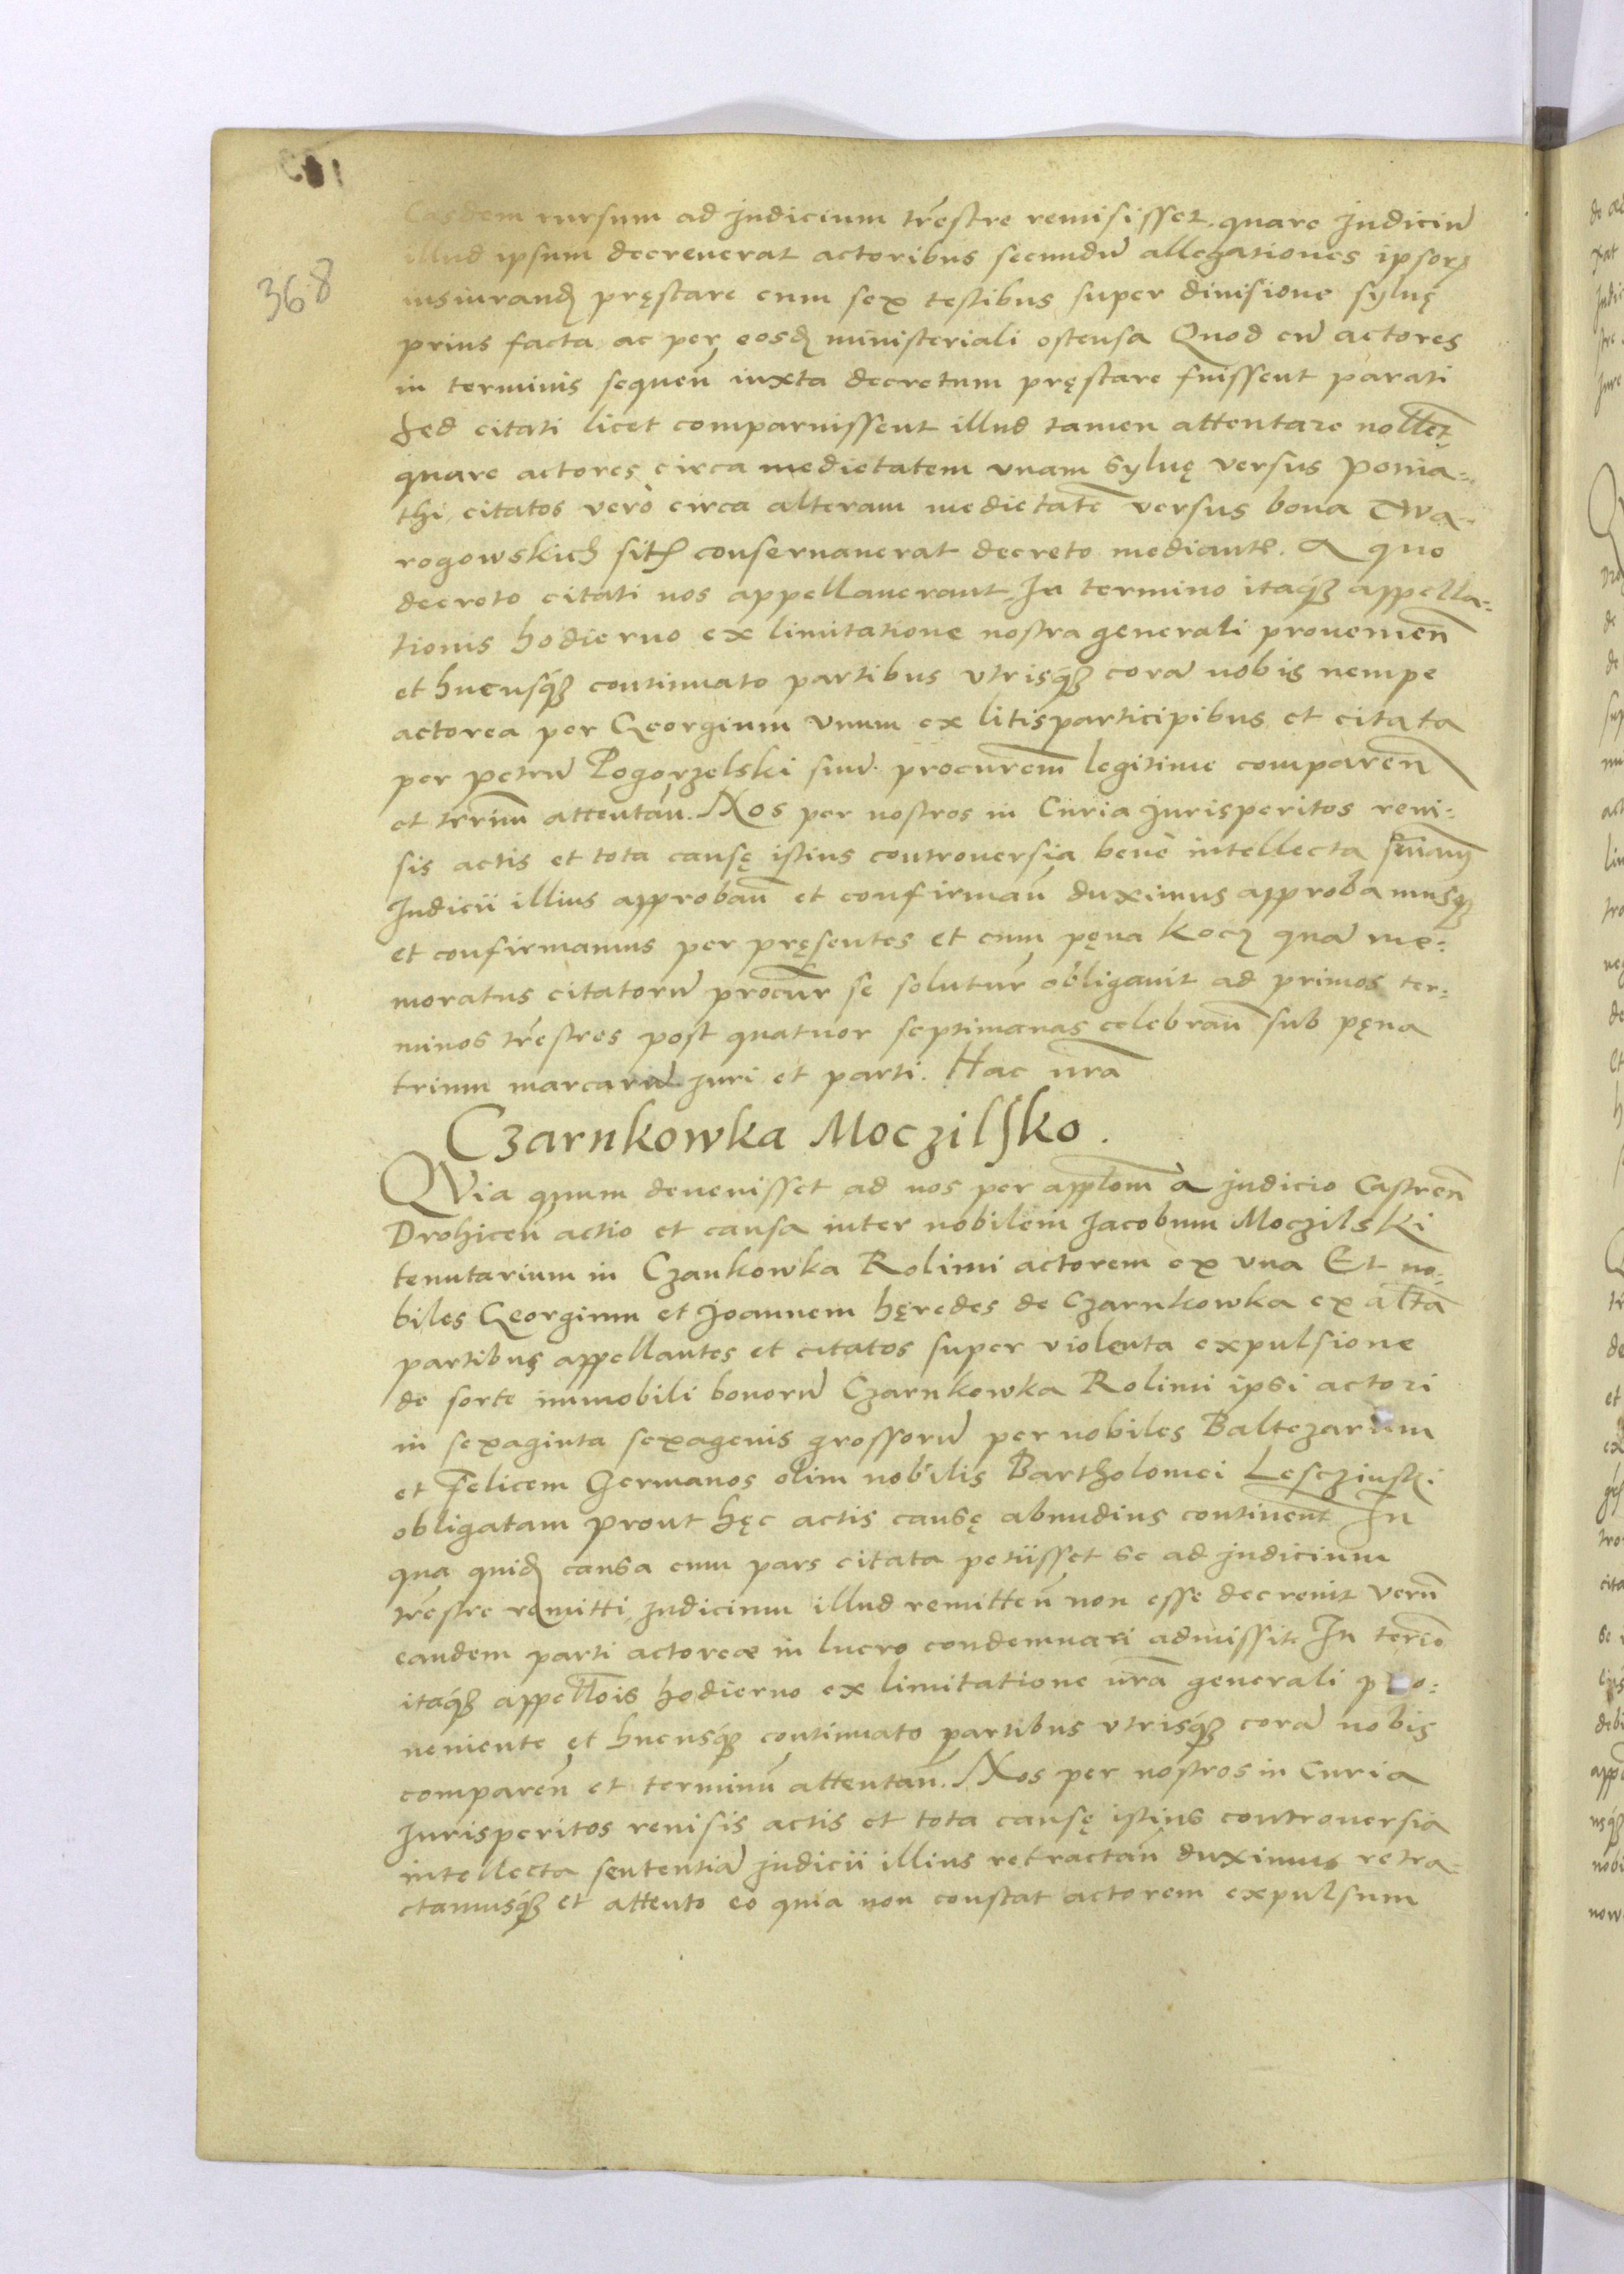 368
Easdem rursum ad judicium trestre remisisset. quare judiciũ
illud ipsum decreuerat actoribus secundũ allegationes ipsorꝫ
iusiurandꝫ pręstare cum sex testibus super diuisione syluę
prius facta ac per eosdꝫ ministeriali ostensa Quod cũ actores
in terminis sequeñ iuxta decretum pręstare fuissent parati
Sed citati licet comparuissent illud tamen attentare nolleñt
quare actores circa medietatem vnam syluę versus Ponia-
thi, citatos verò circa alteram medietatē versus bona Twa-
rogowskich sitꝫ conseruauerat decreto mediante. A quo
decreto citati nos appellauerant. In termino itaqꝫ appella-
tionis hodierno ex limitatione nostra generali prouenieñ
et hucusqꝫ continuato partibus vtrisqꝫ corã nobis nempe
actorea per Georgium vnum ex litisparticipibus et citata
per petrũ Pogorzelski suũ procurem̃ legitime compareñ
et trium̃ attentañ. Nos per nostros in Curia jurisperitos reui-
sis actis et tota causę istius controuersia benè intellecta sñiam
Judicii illius approbañ et confirmañ duximus approbamusqꝫ
et confirmamus per pręsentes et cum pęna Kocꝫ quã me-
moratus citatorũ procur̃ se solutur̃ obligauit ad primos ter-
minos tr̃estres post quatuor septimanas celebrañ sub pęna
trium marcarũ juri et parti. Hac nr̃a
Czarnkowka Moczilsko.
QVia quum deuenisset ad nos per applom̃ à judicio Castreñ
Drohiceñ actio et causa inter nobilem Jacobum Moczilski
tenutarium in Czankowka Rolimi actorem ex vna Et no-
biles Georgium et Joannem hęredes de Czarnkowka ex alt̃a
partibus appellantes et citatos super violenta expulsione
de sorte immobili bonorũ Czarnkowka Rolimi ipsi actori
in sexaginta sexagenis grossorũ per nobiles Baltezarum
et Felicem Germanos olim nobilis Bartholomei Lesczinski
obligatam prout hęc actis causę abundius contineñt In
qua quidꝫ causa cum pars citata petiisset se ad judicium
tr̃estre remitti judicium illud remitteñ non esse decreuit verũ
eandem parti actoreæ in lucro condemnari admissit. In ter̃io
itaqꝫ appellõis hodierno ex limitatione nr̃a generali pro-
ueniente et hucusqꝫ continuato partibus vtrisqꝫ corã nobis
compareñ et terminũ attentañ. Nos per nostros in Curia
Jurisperitos reuisis actis et tota causę istius controuersia
intellecta sententiã judicii illius retractañ duximus retra-
ctamusqꝫ et attento eo quia non constat actorem expulsum